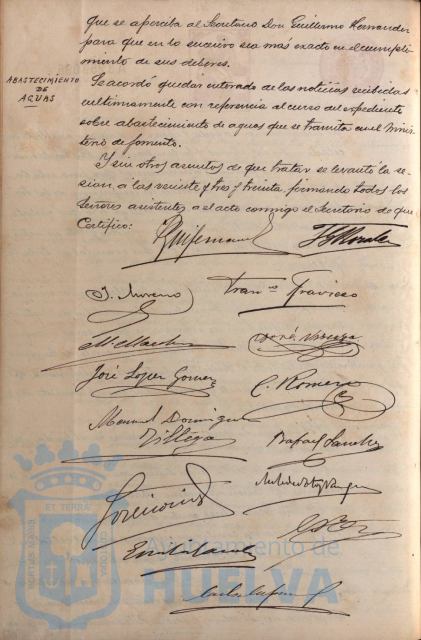 que se aperciba al Secretario Don Guillermo Hernandez
para que en lo sucesivo sea más exacto en el cumpli-
miento de sus deberes.
ABASTECIMIENTO
DE
AGUAS
Se acordó quedar enterada de las noticias recibidas
ultimamente con referencia al curso del expediente
sobre abastecimiento de aguas que se tramita en el Minis-
terio de fomento.
Y sin otros asuntos de que tratar se levantó la se-
sion, a las veinte y tres y treinta firmando todos los
Señores asistentes a el acto conmigo el Secretario de que
Certifico:
J. Moreno
Franco Travieso
José López Gomez
C. Romero
Manuel Dominguez
Villega
Rafael Sanchez
Ayuntamiento de
HUELVA